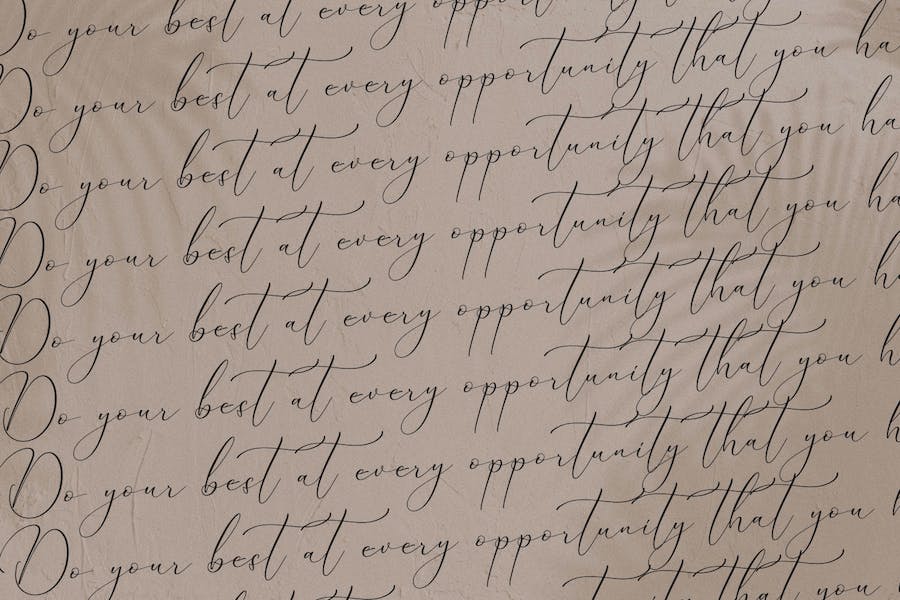 Do your best at every
Do your best at every opportunity that you ha
Do your best at every opportunity that you ha
Do your best at every opportunity that you ha
Do your best at every opportunity that you h
Do your best at every opportunity that you h
Do your best at every opportunity that you h
Do your best at every opportunity that you h
that you